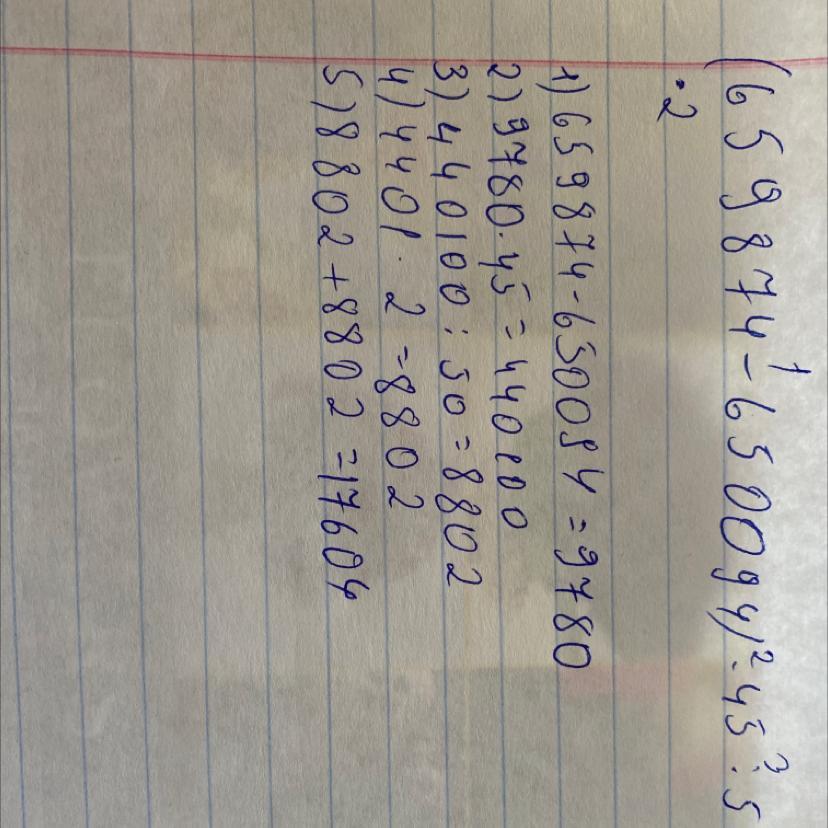 (659874 -¹ 650094) ·² 45 :³ 5
·2
1) 659874-650094=9780
2) 9780·45=440100
3) 440100:50=8802
4) 4401·2=8802
5) 8802+8802=17604